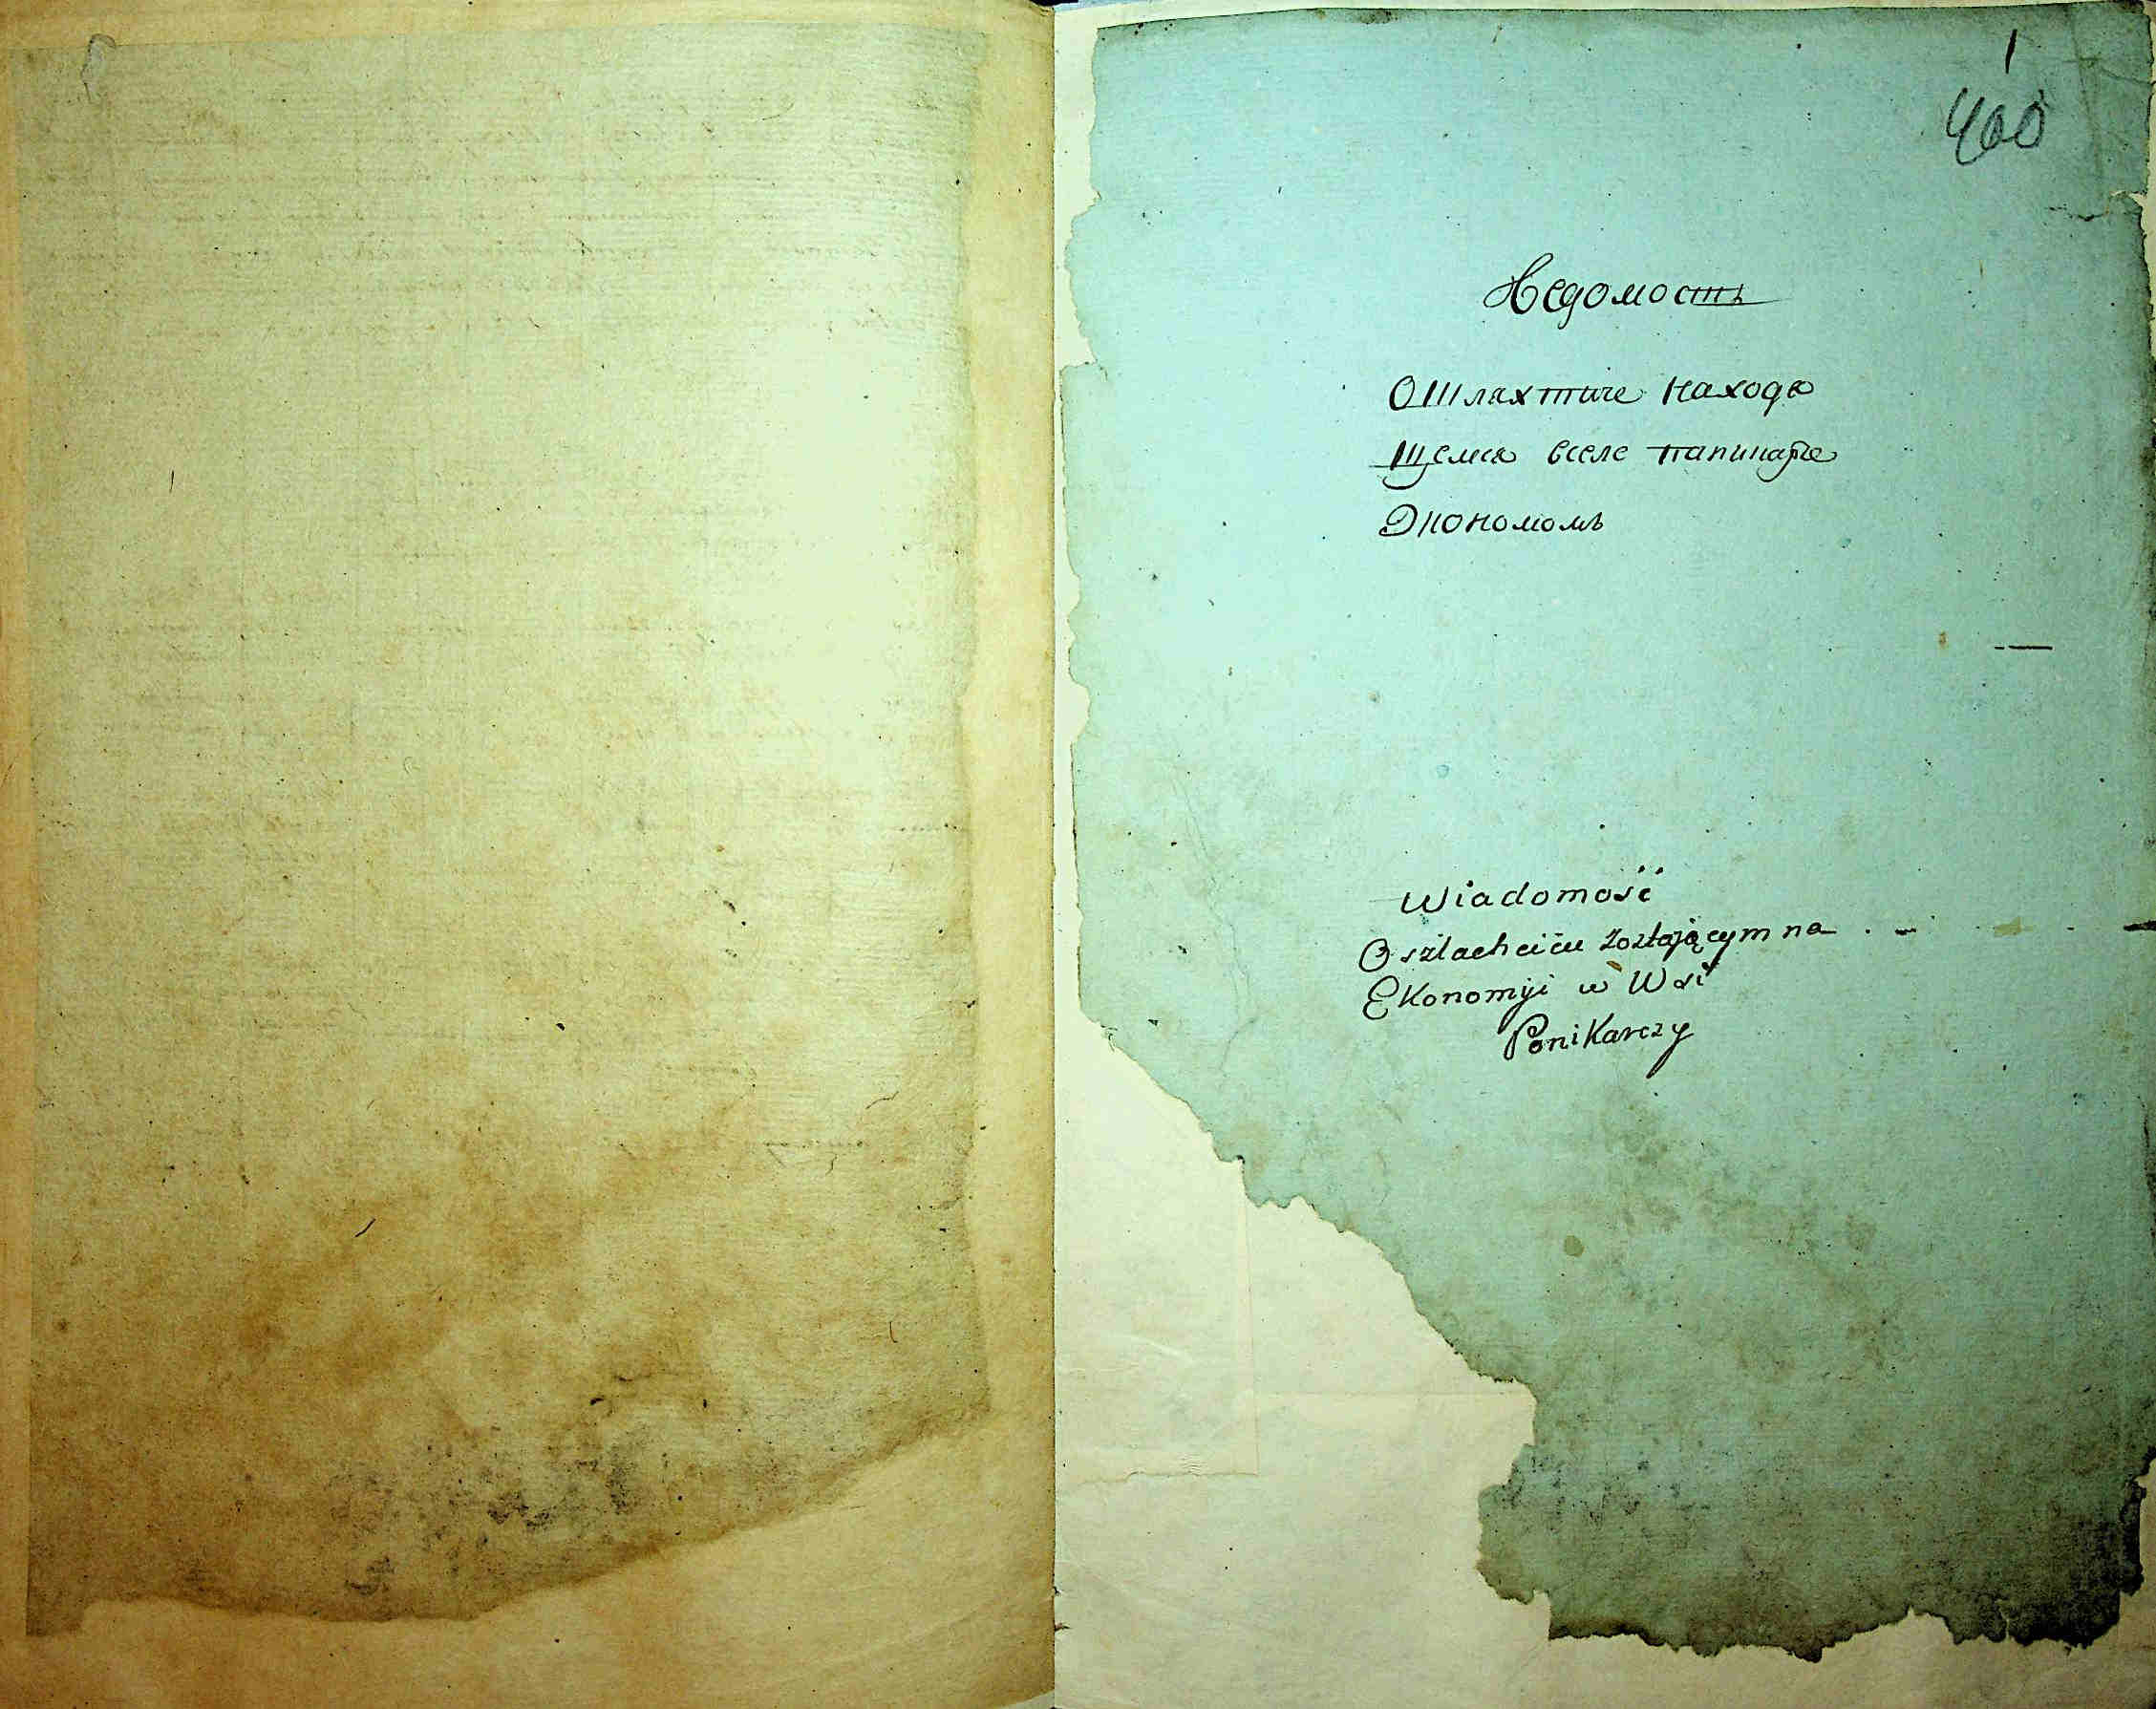 1
400
Ведомость
О Шляхтиче Находя
Щемся вселе
Экономомъ
Wiadomość
O szlachcicu zostającym na
Ekonomiji w Wsi
Ponikarczy